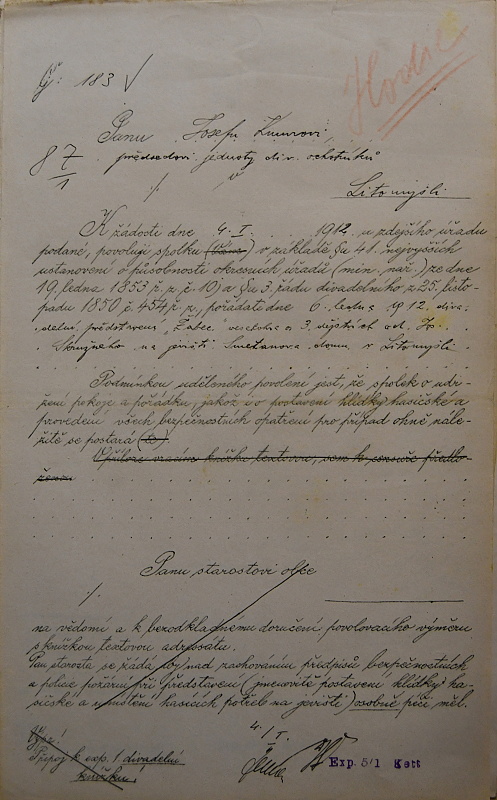 Čj: 183
Hodic
Pánu Josefu Kmurovi
předsedovi jednoty div. ochotníků
8 7/1
v
Litomyšli
K žádosti dne 4. I. 1912 u zdejšího úřadu
podané, povoluji spolku v základě §u 41. nejvyšších
ustanovení o působnosti okresních úřadů (min. nař.) ze dne
19. ledna 1853 ř. z. č. 10) a §u 3. řádu divadelního z 25. listo-
padu 1850 č. 454 ř. z., pořádati dne 6. ledna 1912 diva-
delní představení „Žabec" veselohra o 3 dějstvích od
na jevišti Smetanova domu v Litomyšli.
Podmínkou uděleného povolení jest, že spolek o udr-
žení pokoje a pořádku, jakož i o postavení hlídky hasičské a
provedení všech bezpečnostních opatření pro případ ohně nále-
žitě se postará
V příloze vracím knížku textovou, sem k censuře předlo-
ženou
Panu starostovi obce
na vědomí a k bezodkladnému doručení povolovacího výměru
s knížkou textovou adresátu.
Pan starosta se žádá, by nad zachováním předpisů bezpečnostních
a policie požární při představení (jmenovitě postavení hlídky ha-
sičské a umístění hasících potřeb na jevišti) osobně péči měl.
4. I.
Připoj k exp. 1 divadelní
knížku.
Exp. 5/1 Kett